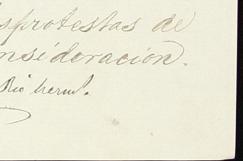 sprotestas de
nsideración.
Rio